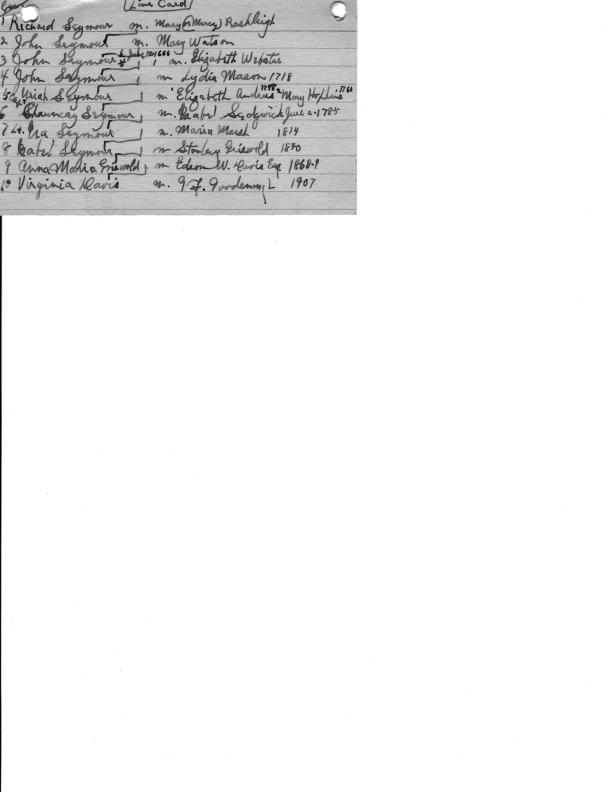 Gen (Line Card)
1 Richard Seymour m. Mary (or Mercy) Rashleigh
2 John Seymour m. Mary Watson
3 John Seymour b. June 12 1666 m. Elizabeth Webster
4 John Seymour m Lydia Mason 1718
5 Uriah Seymour m Elizabeth Andrus Mary Hopkins 1760
6 Chauncey Seymour m. Isabel Sedgwick June 2-1785
7 Lt. Ira Seymour m. Maria Marsh 1814
8 Isabel Seymour m Stanley Griswold 1840
9 Anna Maria Griswold m Edson W. Davis Esq 1868-9
10 Virginia Davis m. 1907